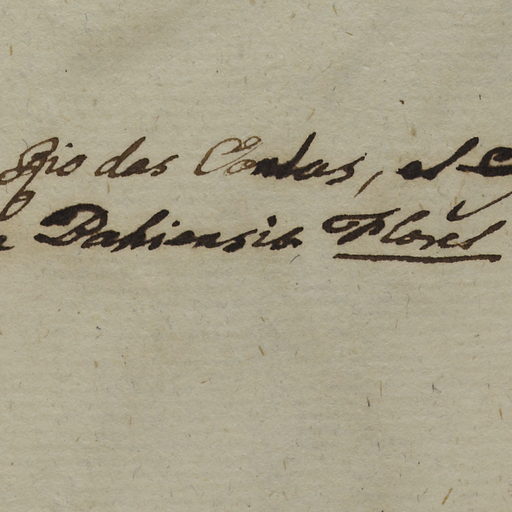 Rio das Contas, et
Bahiensis Flores